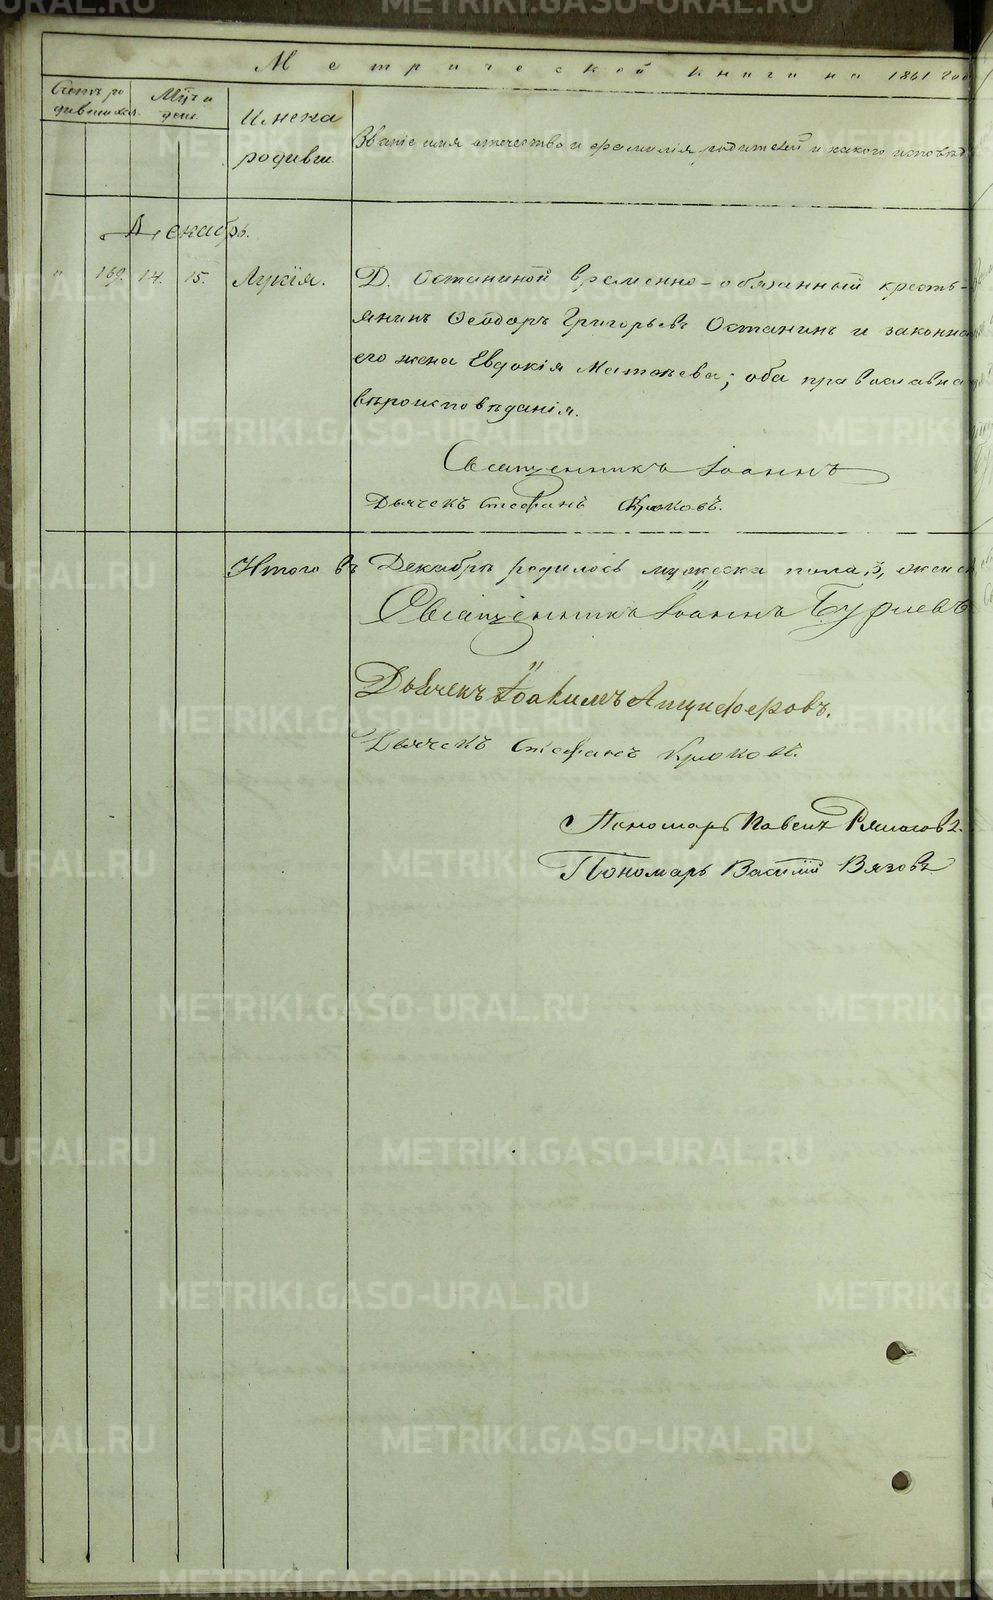 Метрической книги на 1861 год
Счетъ ро
дившихся.
Мѣс. и
день.
Имена
родивш.
Званіе имя отчество и фамилія родителей и какого исповѣд
Декабрь.
" 169. 14. 15. Лукія. Д. Останиной временно-обязанный кресть-
янинъ Ѳеодоръ Григорьевъ Останинъ и законна
его жена Евдокія Матѳѣева; оба православна
вѣроисповѣданія.
Священникъ Іоаннъ
Дьячекъ Стефанъ Крюковъ.
Итого въ Декабрѣ родилось мужеска пола, 3, женск
Священникъ Іоаннъ
Дьячекъ Іоакимъ Анциферовъ.
Дьячекъ Стефанъ Крюковъ.
Пономарь Павелъ
Пономарь Василій Вязовъ
METRIKI.GASO-URAL.RU